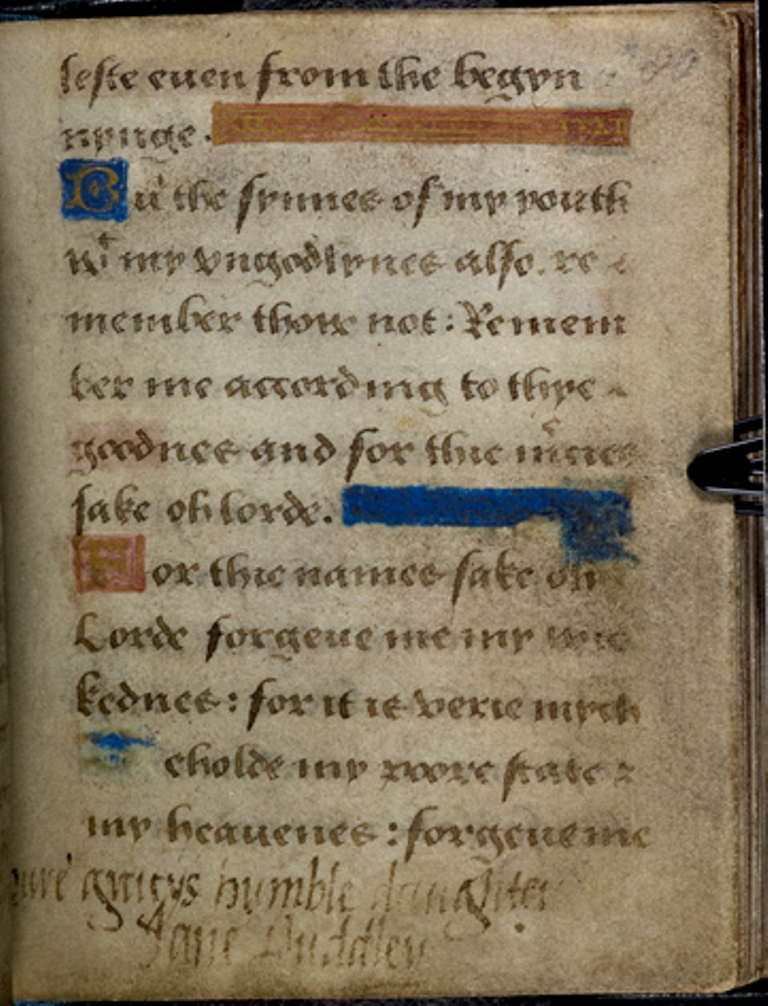 leste euen from the begyn
nynge.
But the synnes of my youth
wt my vngodlynes also. re
member thow not: Remem
ber me according to thye
goodnes and for thie mcies
sake oh lorde.
For thie names sake oh
Lorde forgeue me my wic
kednes: for it is verie mych
eholde my poore state &
my heauenes: forgeue me
youre gracys humble daughter
Jane Duddley